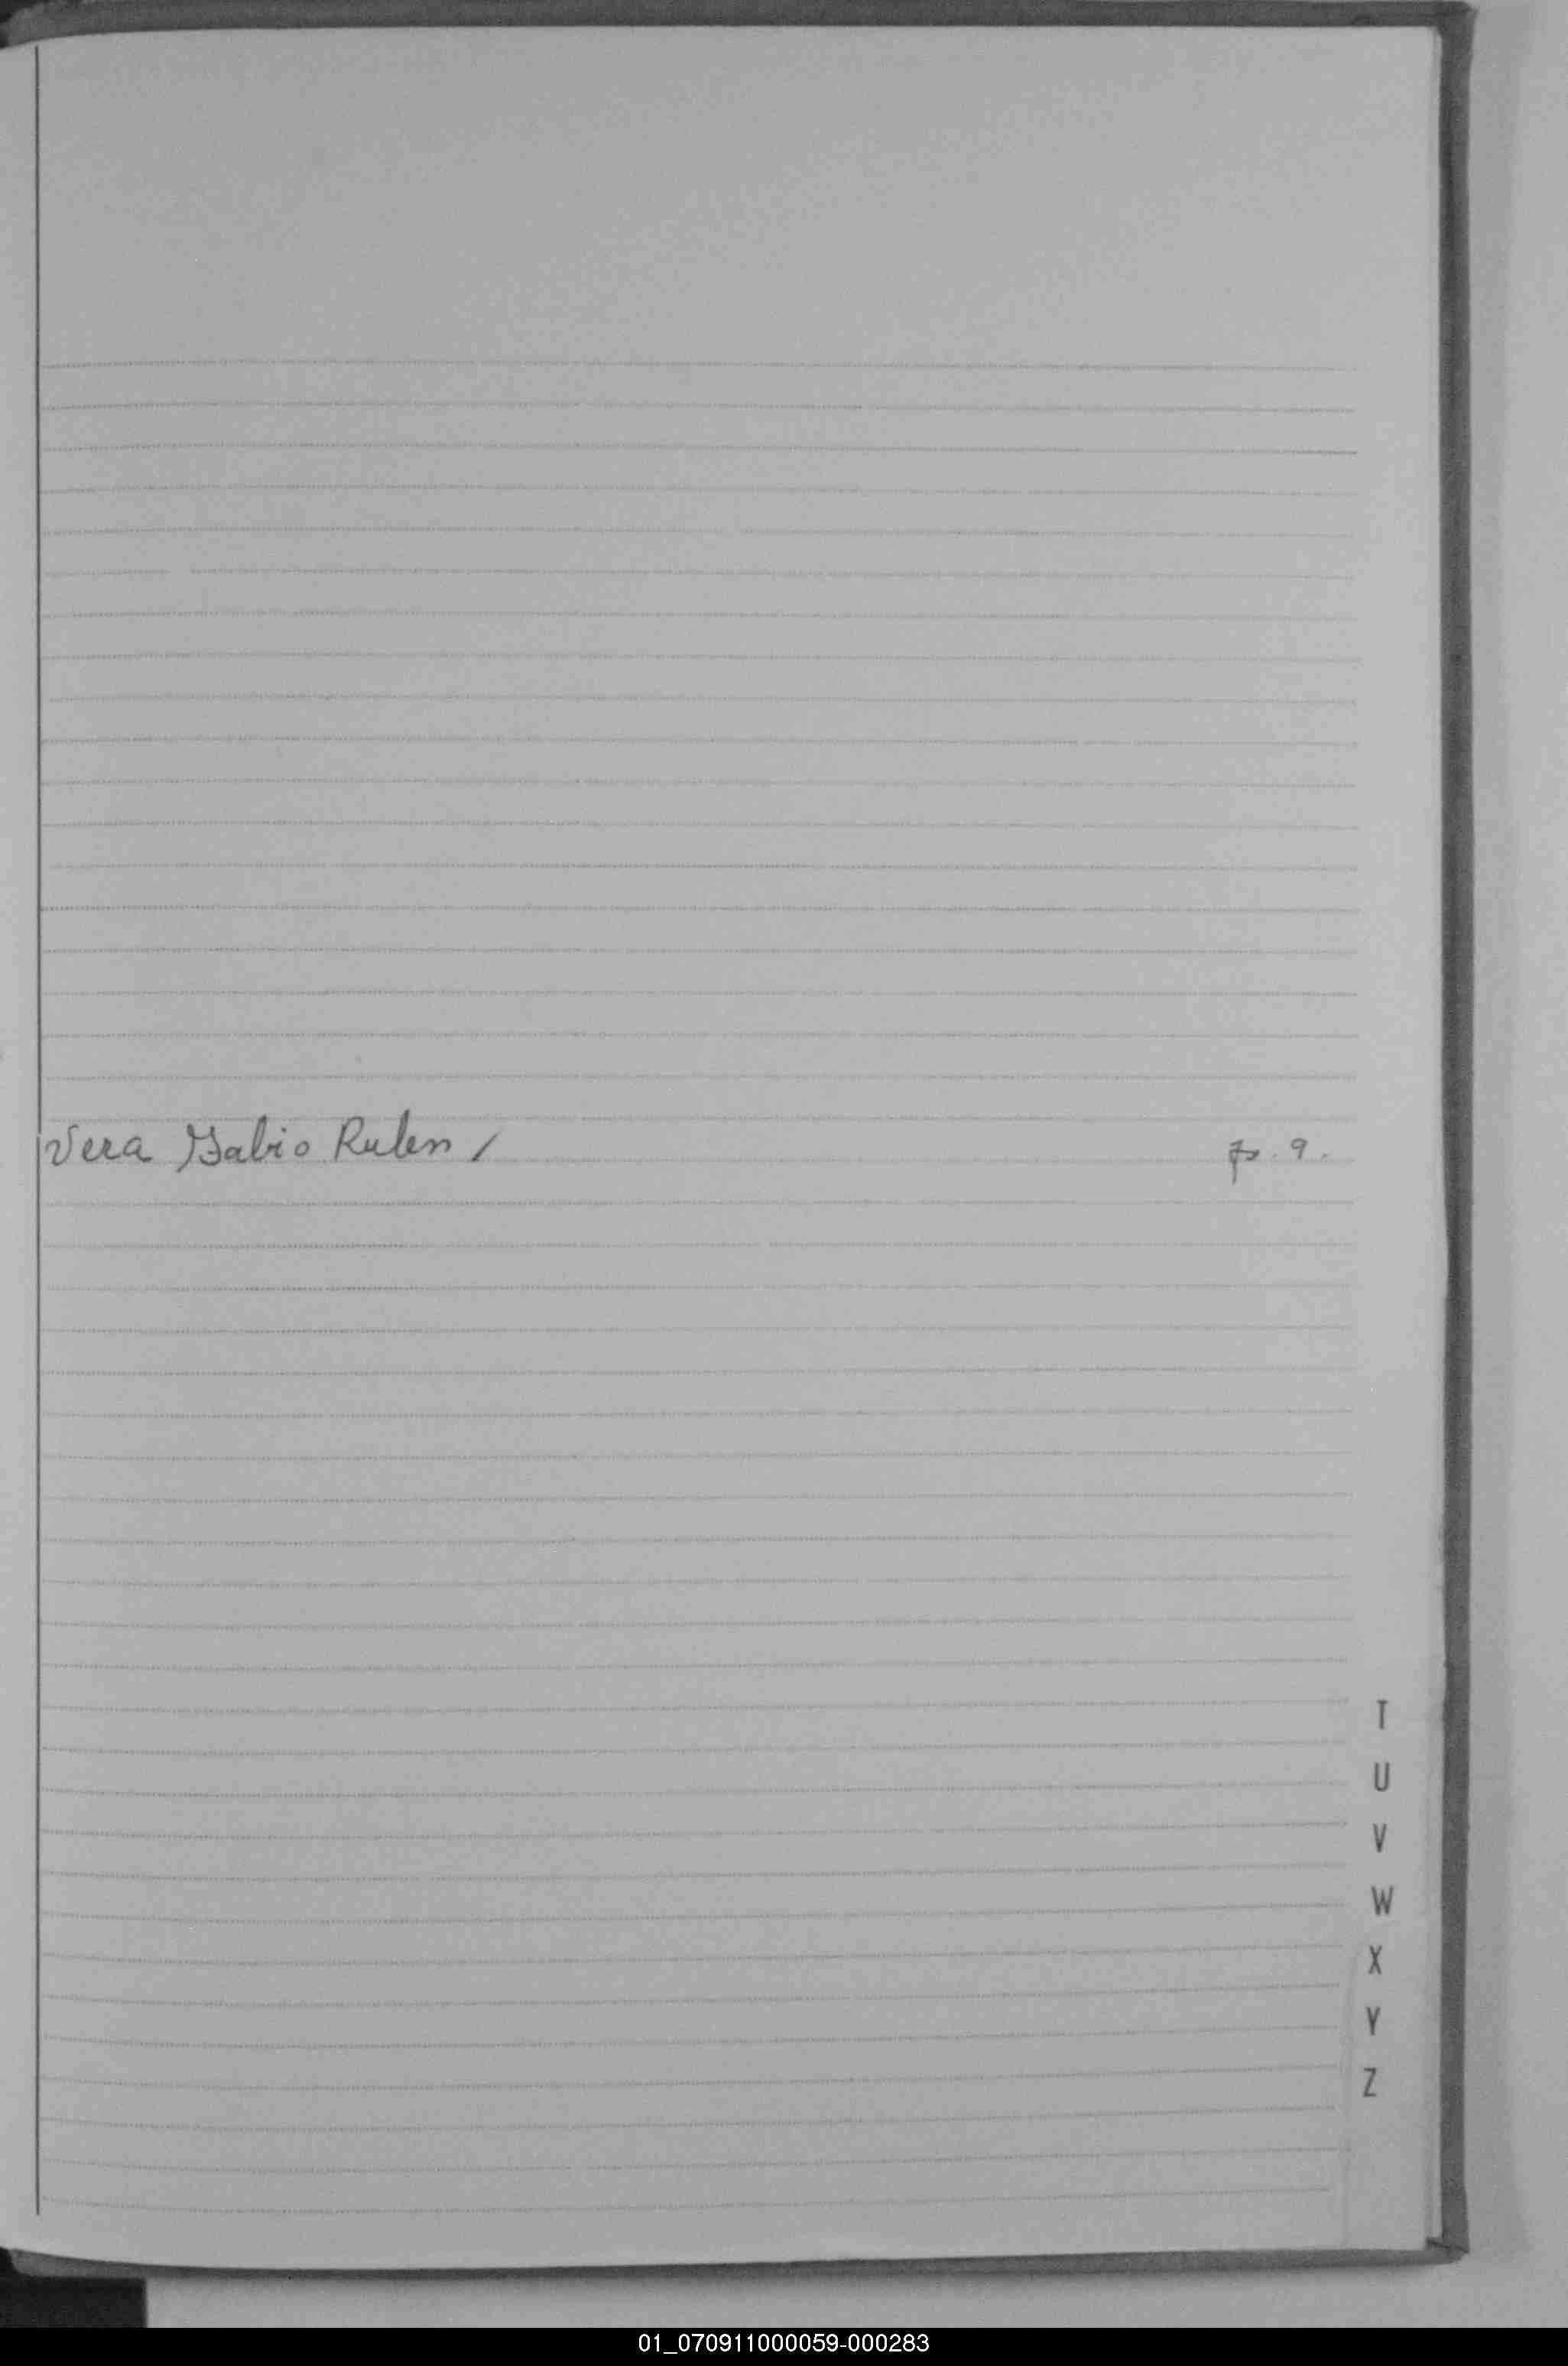 Vera Fabio Ruben /
p. 9.
T
U
V
W
X
Y
Z
01_070911000059-000283